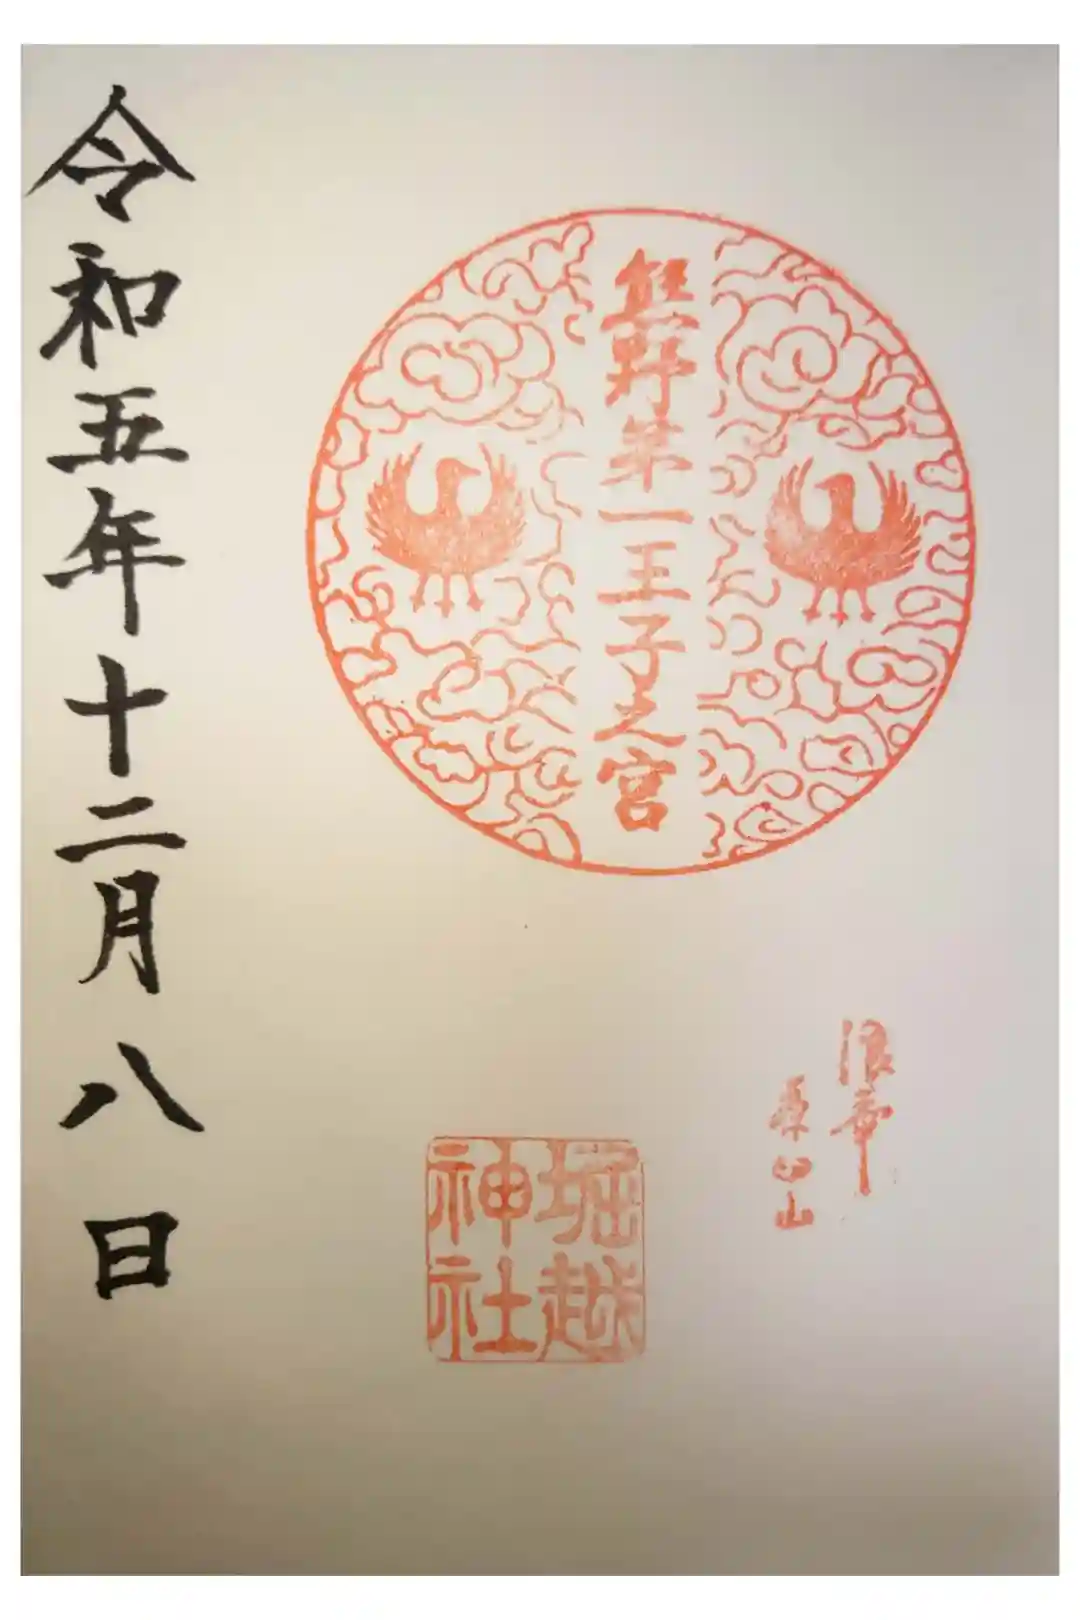 熊野第一王子之宮
浪華
堀越
神社
令和五年十二月八日